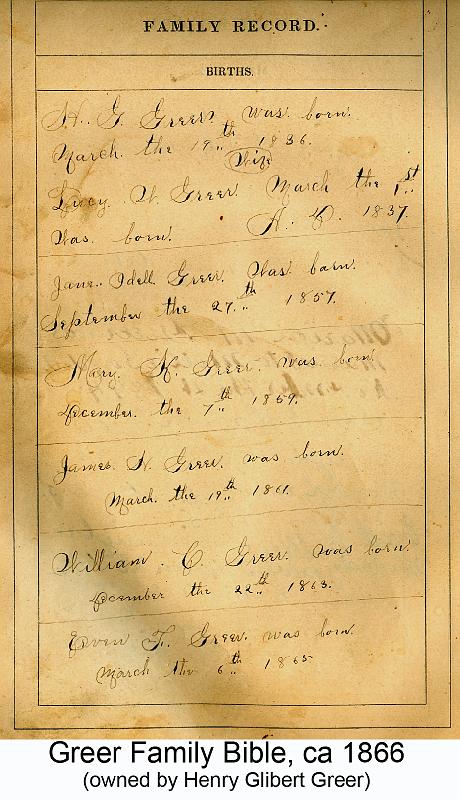 FAMILY RECORD.
BIRTHS.
H. G. Greer was born.
March. the 19th 1836.
Wife
Lucy. W. Greer March the 1st
Was born. A. D. 1837.
Jane. Idell Greer. Was barn.
September the 27th 1857.
Mary. H. Greer. was born.
December. the 7th 1859.
James. N. Greer. was born.
March. the 19th 1861.
William. C. Greer. was born.
December the 22th 1863.
Ervin F. Greer. was born.
March the 6th 1865
Greer Family Bible, ca 1866
(owned by Henry Glibert Greer)